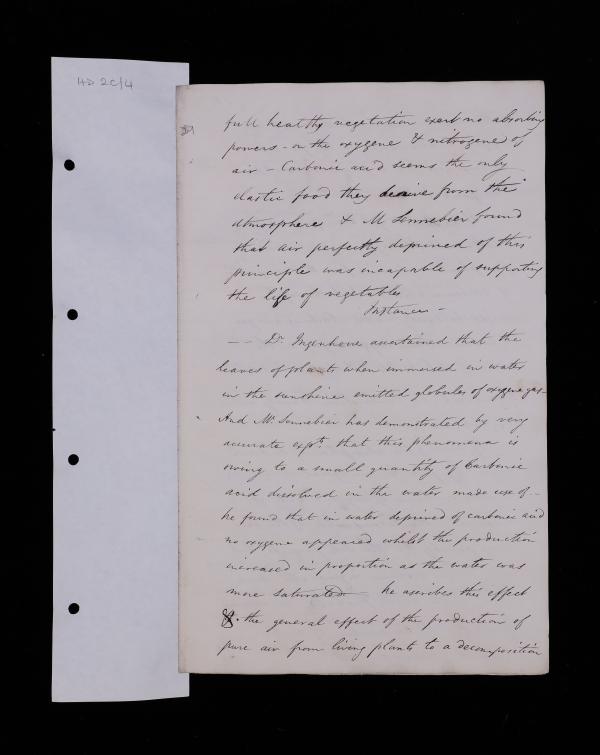 HD 2C/4
full healthy vegetation exert no absorbing
powers - on the oxygene & nitrogene of
air - Carbonic acid seems the only
elastic food they derive from the
atmosphere & M Sennebier found
that air perfectly deprived of this
principle was incapable of supporting
the life of vegetables
Instances -
- - Dr. Ingenhouz ascertained that the
leaves of plants when immersed in water
in the sunshine emitted globules of oxygene gas -
And Mr. Sennebier has demonstrated by very
accurate expts. that this phenomena is
owing to a small quantity of Carbonic
acid dissolved in the water made use of -
he found that in water deprived of carbonic acid
no oxygene appeared whilst the production
increased in proportion as the water was
more saturated he ascribes this effect
&. the general effect of the production of
pure air from living plants to a decomposition